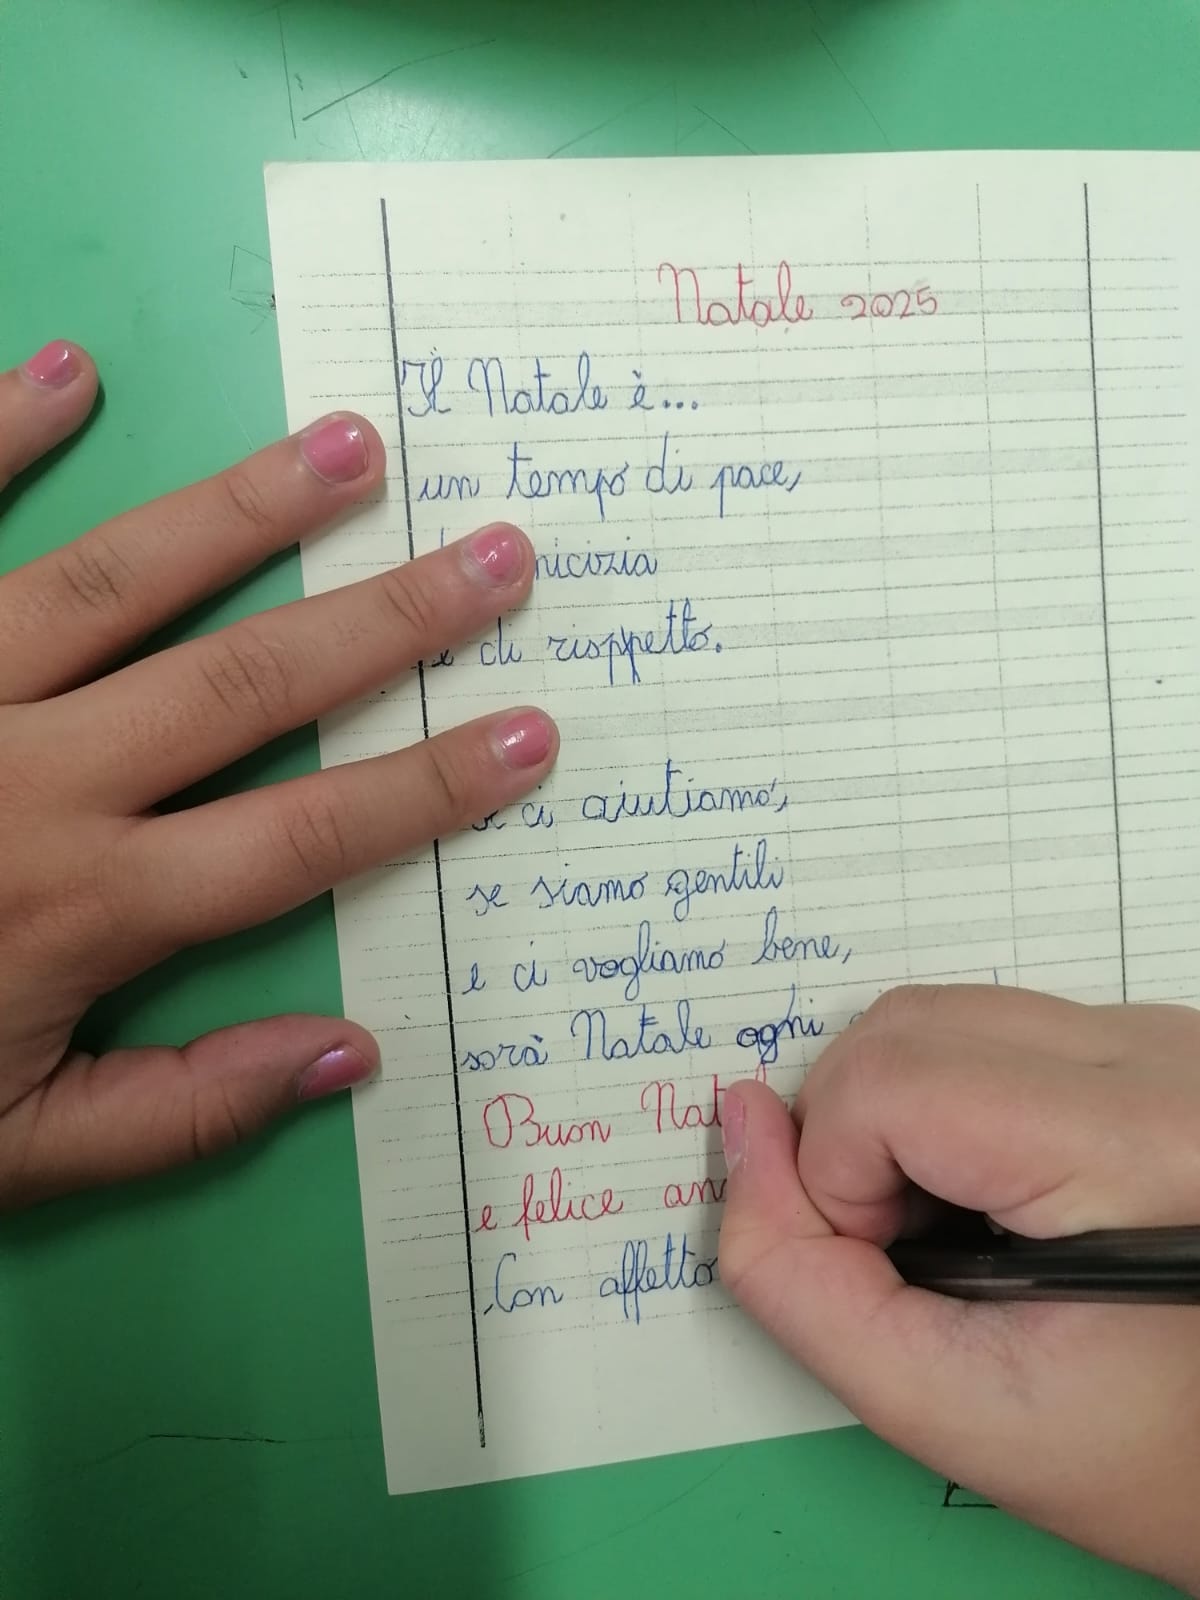 Natale 2025
Il Natale è...
un tempo di pace,
e di rispetto.
ci aiutiamo,
se siamo gentili
e ci vogliamo bene,
sarà Natale ogni
Buon
e felice
Con affetto